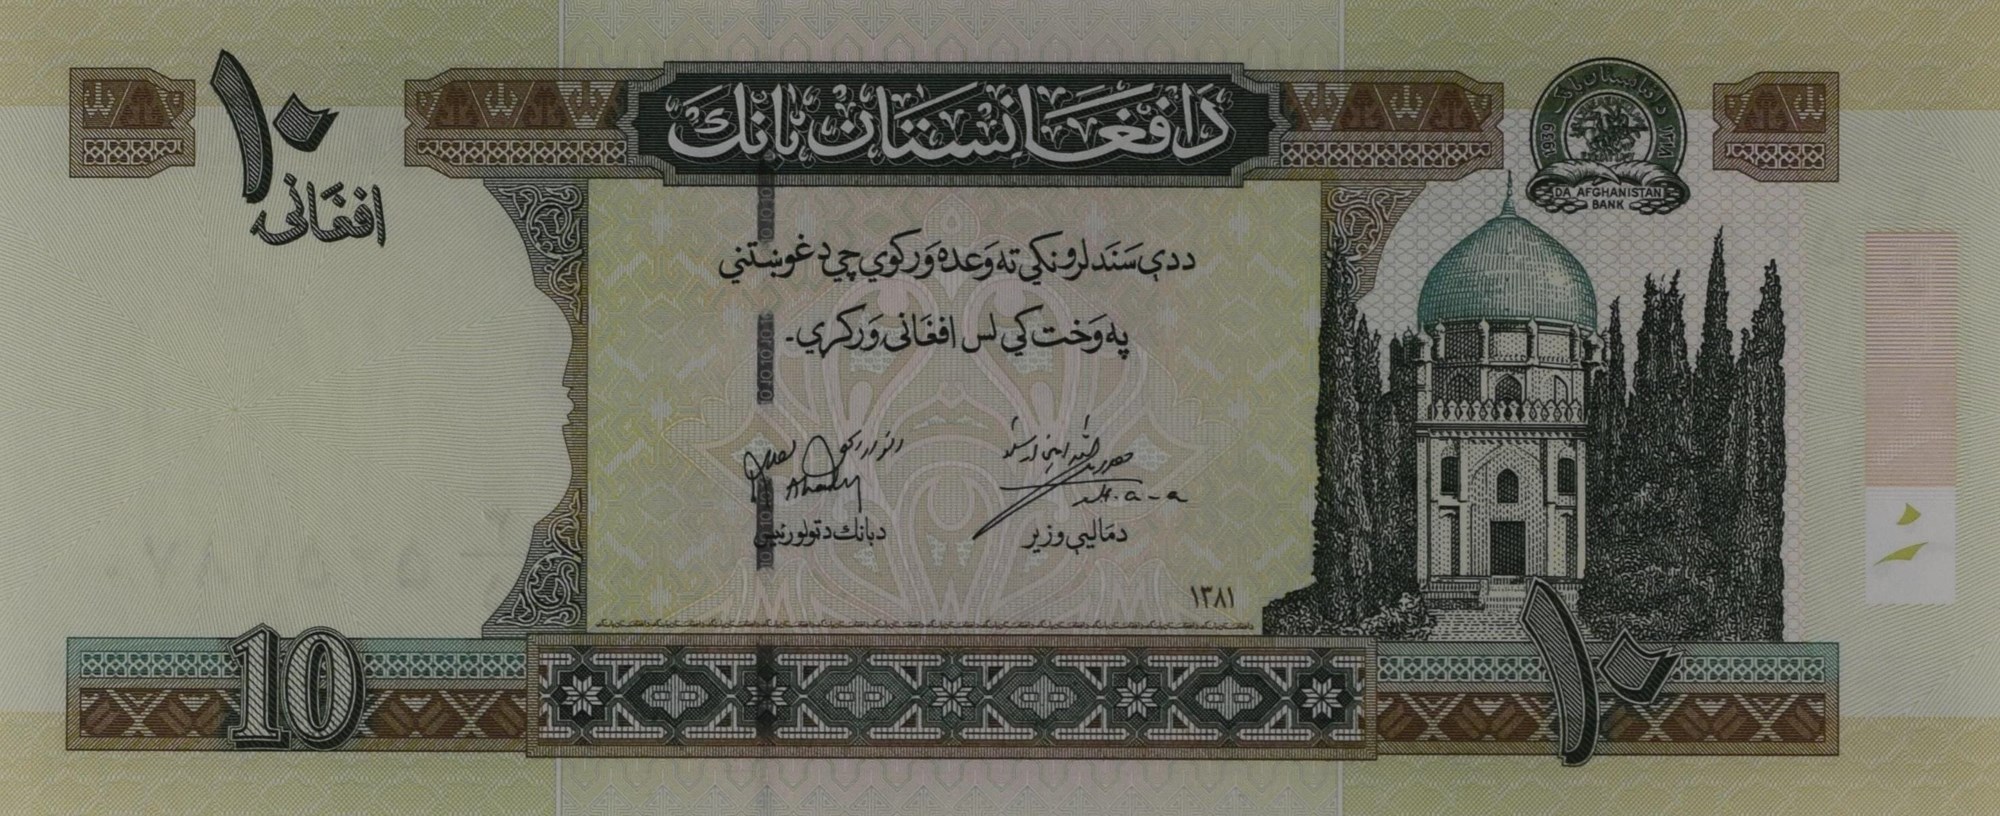 د افغانستان بانك
۱۰
افغانۍ
1939
DA AFGHANISTAN
BANK
ددې سند لرونکي ته وعده ورکوي چې د غوښتنې
په وخت کې لس افغانۍ ورکړي.
Ahady
د بانك د ټولو رئیس
د ماليې وزیر
۱۳۸۱
10
۱۰